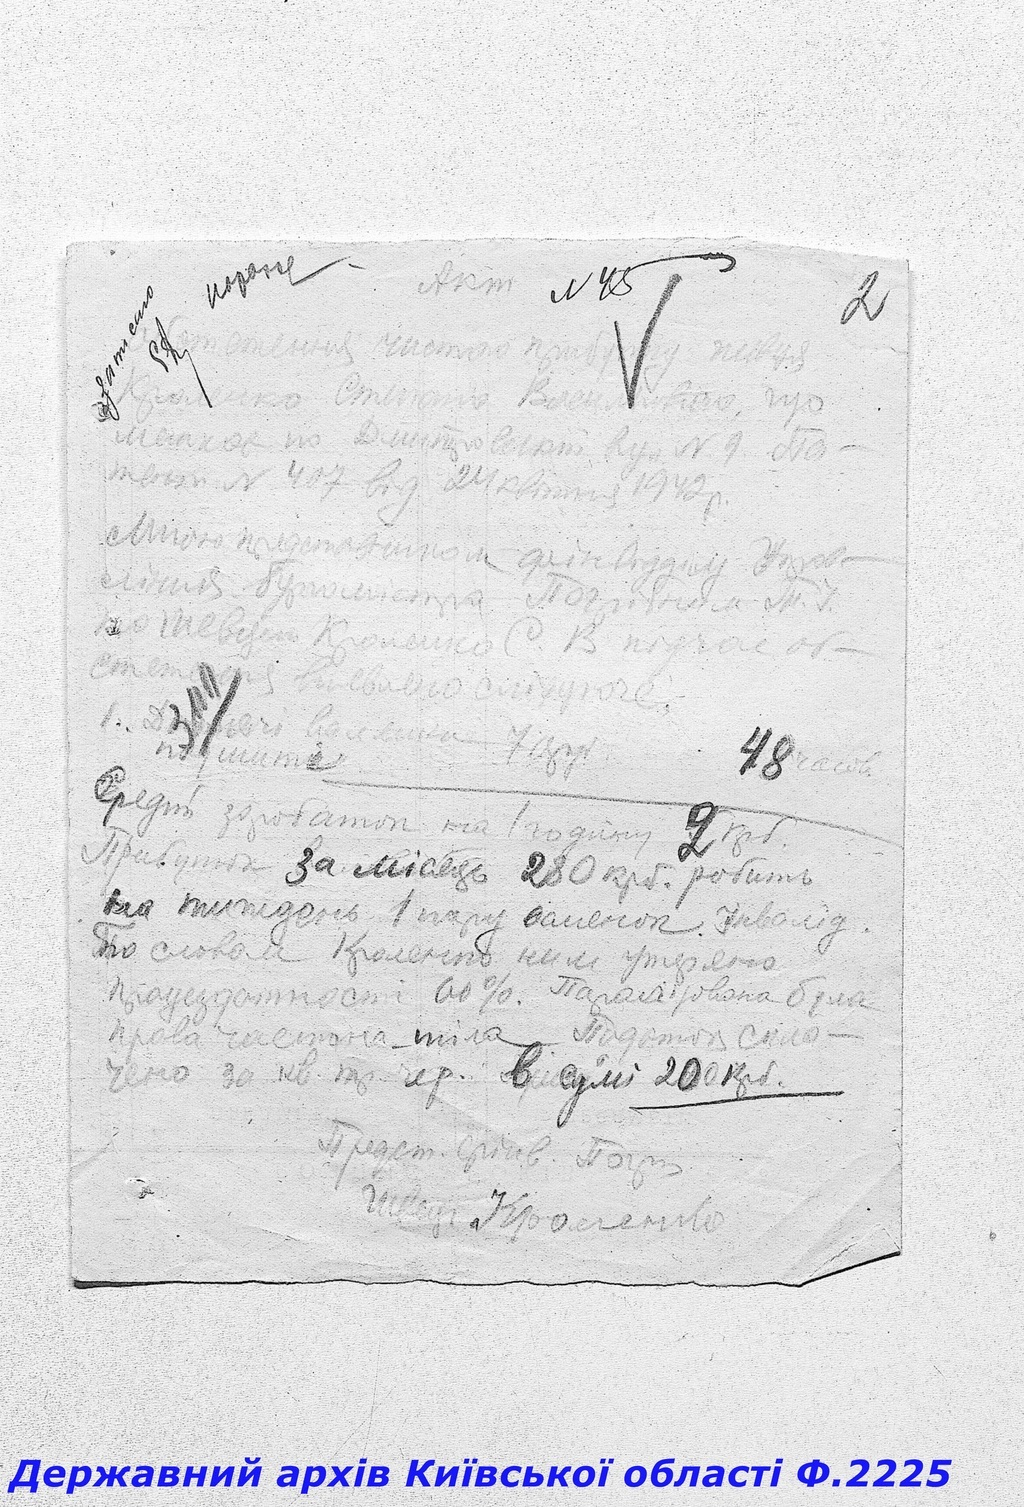 Акт N 45
2
записано
обстеження чистого прибутку шевця
Кроленко Степана Василовича, що
мешкає по Дмитровській вул N 9. Па-
тент N 407 від 24 квітня 1942 р.
Мною представником фінвідділу Управ-
ління Бургомістра Погрібним Т. І.
Кроленко С. В під час об-
стеження виявлено слідуюче.
1. валянки 7 крб. 48 часов
по шиттє
Средній заробаток на 1 годину 2 крб.
Прибуток за місяць 280 крб. робить
на тиждень 1 пару валенок. Інвалід.
По словам Кроленко ним утеряно
працездатності 60%. Паралізована була
права частина тіла Податок спла-
чено за кв в сумі 200 крб.
Предст. фінв. Погріб
Швець Кроленко
Державний архів Київської області Ф.2225